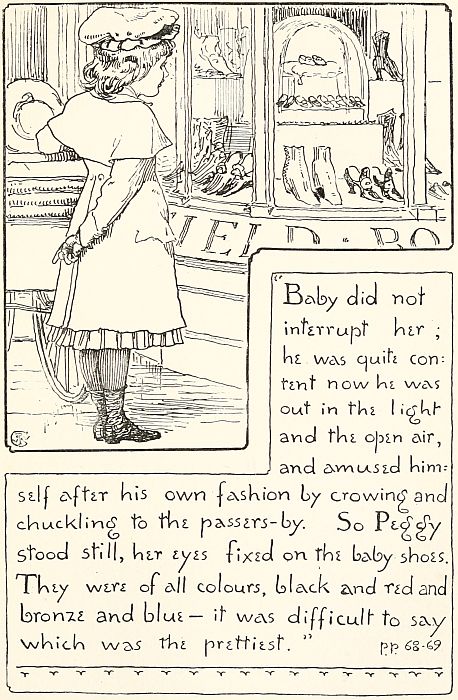 IELD · BO
"Baby did not
interrupt her ;
he was quite con:
tent now he was
out in the light
and the open air,
and amused him:
self after his own fashion by crowing and
chuckling to the passers-by. So Peggy
stood still, her eyes fixed on the baby shoes.
They were of all colours, black and red and
bronze and blue — it was difficult to say
which was the prettiest." p.p. 68-69